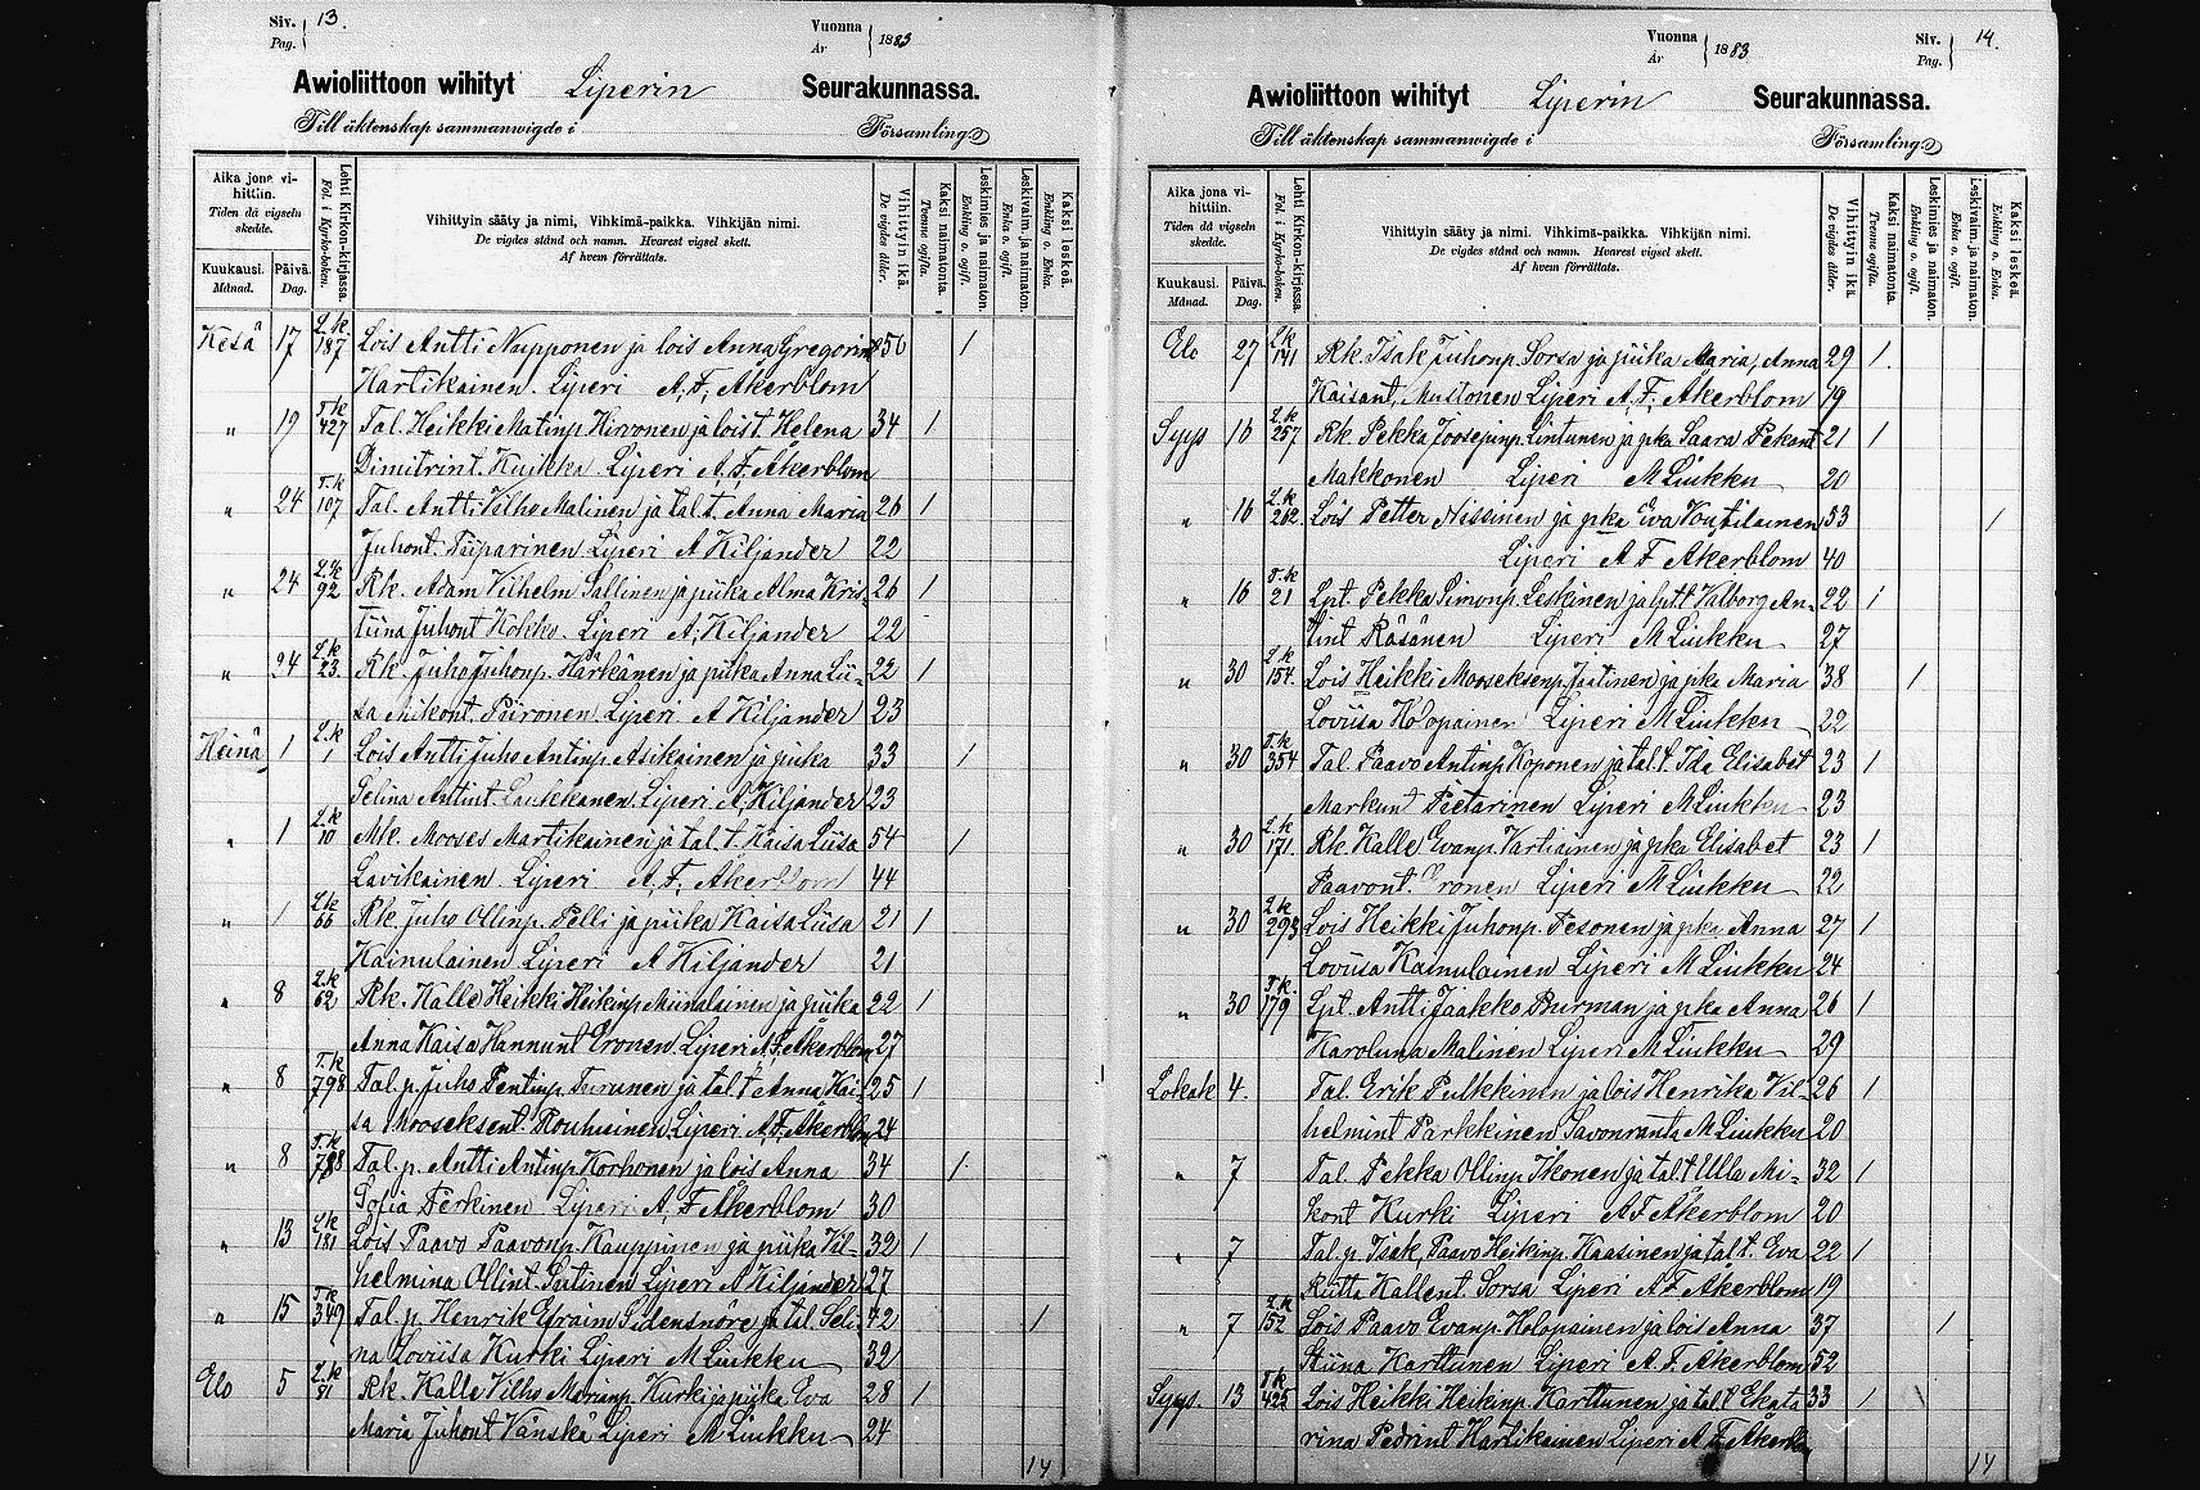 Siv. 13.
Pag.
Vuonna 1883
År
Awioliittoon wihityt Liperin Seurakunnassa.
Till äktenskap sammanwigde i Församling
Aika jona vihittiin.
Tiden då vigseln skedde.
Kuukausi. Månad.
Päivä. Dag.
Lehti Kirkon-kirjassa.
Fol. i Kyrko-boken.
Vihittyin sääty ja nimi, Vihkimä-paikka. Vihkijän nimi.
De vigdes stånd och namn. Hvarest vigsel skett.
Af hvem förrättats.
Vihittyin ikä.
De vigdes ålder.
Kaksi naimatonta.
Tvenne ogifta.
Leskimies ja naimaton.
Enkling o. ogift.
Leskivaim. ja naimaton.
Enka o. ogift.
Kaksi leskeä.
Enkling o. Enka.
Kesä 17 L.k 187 Lois Antti Nupponen ja lois Anna Gregorint 50 1
Hartikainen. Liperi A. F. Åkerblom
" 19 T.k 427 Tal. Heikki Matinp. Hirvonen ja lois t. Helena 34 1
Dimitrint. Kuikka Liperi A. F. Åkerblom
" 24 T.k 107 Tal. Antti Vilho Malinen ja tal. t. Anna Maria 26 1
Juhont. Tiiparinen Liperi A Kiljander 22
" 24 L.k 92 Rk. Adam Vilhelm Sallinen ja piika Alma Kris= 26 1
tiina Juhont Kokko. Liperi A. Kiljander 22
" 24 L.k 23. Rk. Juho Juhonp. Härkänen ja piika Anna Lii= 22 1
sa Mikont. Piironen Liperi A Kiljander 23
Heinä 1 L.k 1 Lois Antti Juho Antinp. Asikainen ja piika 33 1
Selina Antint. Laukkanen. Liperi A. Kiljander 23
" 1 L.k 10 Mk. Mooses Martikainen ja tal. t. Kaisa Liisa 54 1
Lavikainen Liperi A. F. Åkerblom 44
" 1 L.k 66 Rk. Juho Ollinp. Pelli ja piika Kaisa Liisa 21 1
Kainulainen Liperi A Kiljander 21
" 8 L.k 62 Rk. Kalle Heikki Heikinp. Miinalainen ja piika 22 1
Anna Kaisa Hannunt Eronen. Liperi A. F. Åkerblom 27
" 8 T.k 798 Tal. p. Juho Pentinp. Turunen ja tal. t. Anna Kai= 25 1
sa Mooseksent. Rouhiainen. Liperi A. F. Åkerblom 24
" 8 T.k 788 Tal. p. Antti Antinp. Korhonen ja lois Anna 34 1
Sofia Terkinen Liperi A. F Åkerblom 30
" 13 L.k 181 Lois Paavo Paavonp. Kauppinen ja piika Vil= 32 1
helmina Ollint. Sutinen Liperi A Kiljander 27
" 15 T.k 349 Tal. p. Henrik Efraim Sidensnöre ja tal. Seli= 42 1
na Loviisa Kurki Liperi M Liukku 32
Elo 5 L.k 81 Rk. Kalle Vilho Kurki ja piika Eva 28 1
Maria Juhont Vänskä Liperi M Liukku 24
14
Vuonna 1883
År
Siv. 14.
Pag.
Awioliittoon wihityt Liperin Seurakunnassa.
Till äktenskap sammanwigde i Församling
Aika jona vihittiin.
Tiden då vigseln skedde.
Kuukausi. Månad.
Päivä. Dag.
Lehti Kirkon-kirjassa.
Fol. i Kyrko-boken.
Vihittyin sääty ja nimi. Vihkimä-paikka. Vihkijän nimi.
De vigdes stånd och namn. Hvarest vigsel skett.
Af hvem förrättats.
Vihittyin ikä.
De vigdes ålder.
Kaksi naimatonta.
Tvenne ogifta.
Leskimies ja naimaton.
Enkling o. ogift.
Leskivaim. ja naimaton.
Enka o. ogift.
Kaksi leskeä.
Enkling o. Enka.
Elo 27 L.k 141 Rk. Isak Juhonp. Sorsa ja piika Maria, Anna 29 1.
Kaisant. Mustonen Liperi A. F. Åkerblom 19
Syys 16 L.k 257 Rk Pekka Joosepinp. Lintunen ja pka Saara Pekant 21 1
Makkonen Liperi M Liukku 20
" 16 L.k 262. Lois Petter Nissinen ja pka Eva Voutilainen 53 1
Liperi A F Åkerblom 40
" 16 T.k 21 Lpt. Pekka Simonp. Leskinen ja lpt. t Valborg An= 22 1
tint Räsänen Liperi M Liukku 27
" 30 L.k 154. Lois Heikki Mooseksenp. Jaatinen ja pka Maria 38 1
Loviisa Holopainen Liperi M Liukku 22
" 30 T.k 354 Tal. Paavo Antinp. Koponen ja tal. t. Ida Elisabet 23 1
Markunt Pietarinen Liperi M Liukku 23
" 30 L.k 171. Rk. Kalle Evanp. Vartiainen ja pka Elisabet 23 1
Paavont. Eronen Liperi M Liukku 22
" 30 L.k 293 Lois Heikki Juhonp. Pesonen ja pka Anna 27 1
Loviisa Kainulainen Liperi M Liukku 24
" 30 T.k. 179 Lpt. Antti Jaakko Purman ja pka Anna 26 1
Karoliina Malinen Liperi M Liukku 29
Lokak 4. Tal. Erik Pulkkinen ja lois Henrika Vil= 26 1
helmint Parkkinen Savonranta M Liukku 20
" 7 Tal. Pekka Ollinp. Ikonen ja tal. t Ulla Mi= 32 1
kont Kurki Liperi A F Åkerblom 20
" 7 Tal. p. Isak, Paavo Heikinp. Kaasinen ja tal t. Eva 22 1
Riitta Kallent. Sorsa Liperi A F Åkerblom 19
" 7 L.k 152 Lois Paavo Evanp. Holopainen ja lois Anna 37 1
Stiina Karttunen Liperi A. F. Åkerblom 52
Syys. 13 T.k 425 Lois Heikki Heikinp. Karttunen ja tal. t Ekata 33 1
rina Pedrint Hartikainen Liperi A F Åkerblom
14